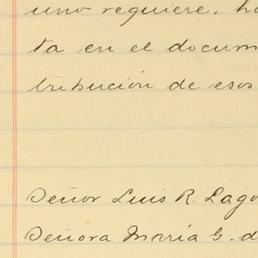 uno requiere, ha
ta en el docum
tribución de esos
Señor Luis R. Lago
Señora María G. d